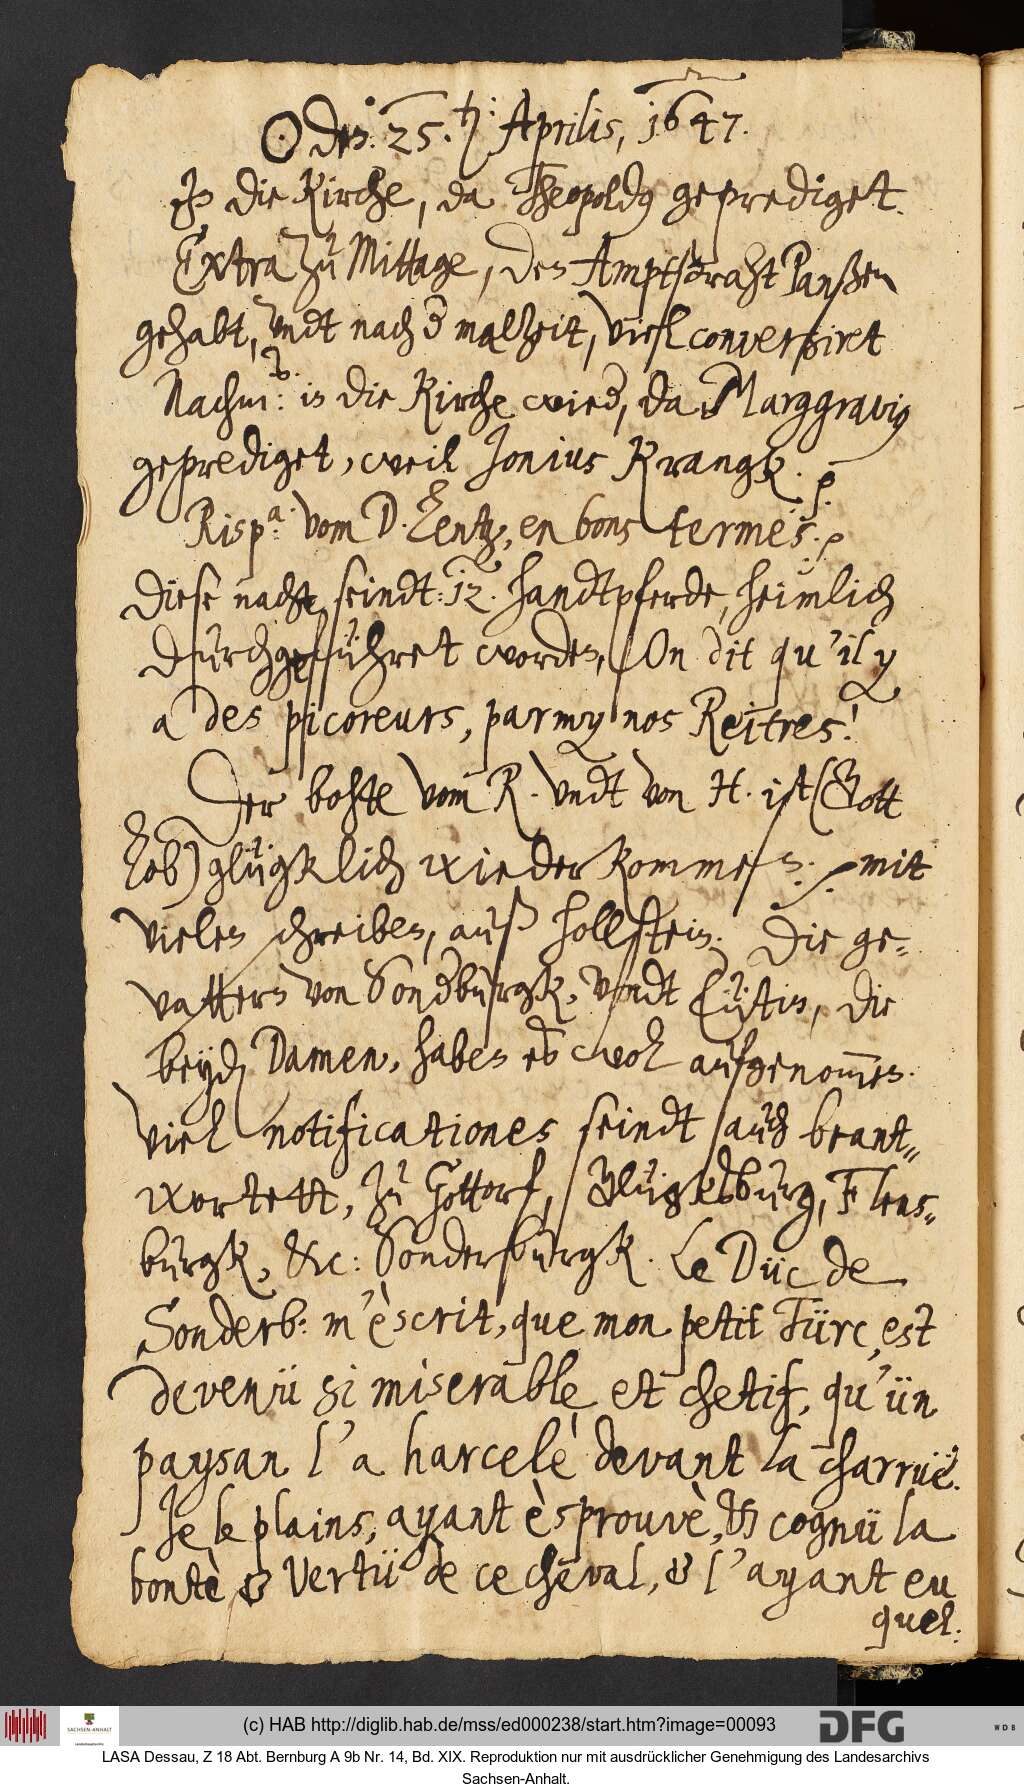 ☉ den: 25. t: Aprilis, 1647.
In die Kirche, da Theopoldus geprediget.
Extra zu Mittage, den Amptßraht Panßen
gehabt, undt nach der malzeit, viel conversiret
Nachm: in die Kirche wieder, da Marggravius
geprediget, weil Jonius Krangk. p
Rispa: vom D. Lentz, en bons termes. p
Diese nacht seindt: 12. handtpferde, heimlich
durchgeführet worden, On dit qu'il y
a des picoreurs, parmy nos Reitres!
Der bohte vom R. undt von H. ist (Gott
Lob) glügklich wiederkommen. p mit
vielen schreiben, auß Hollstein. Die ge-
vattern von Sonderburgk, undt Eutin, die
beyden Damen, haben es wol aufgenommen.
Viel notificationes seindt auch beant-
wortett, zu Gottorf, Glügksburg, Flens-
burgk, &c: Sonderburgk. Le Düc de
Sonderb: m'èscrit, que mon petit Türc, est
devenü si miserable et chetif, qu'ün
paysan l'a harcelè devant la charrüe.
Je le plains, ayant èsprouvè, & cognü la
bontè & vertü de ce cheval, & l'ayant eu
quel:
(c) HAB http://diglib.hab.de/mss/ed000238/start.htm?image=00093
SACHSEN-ANHALT
DFG
WDB
LASA Dessau, Z 18 Abt. Bernburg A 9b Nr. 14, Bd. XIX. Reproduktion nur mit ausdrücklicher Genehmigung des Landesarchivs
Sachsen-Anhalt.